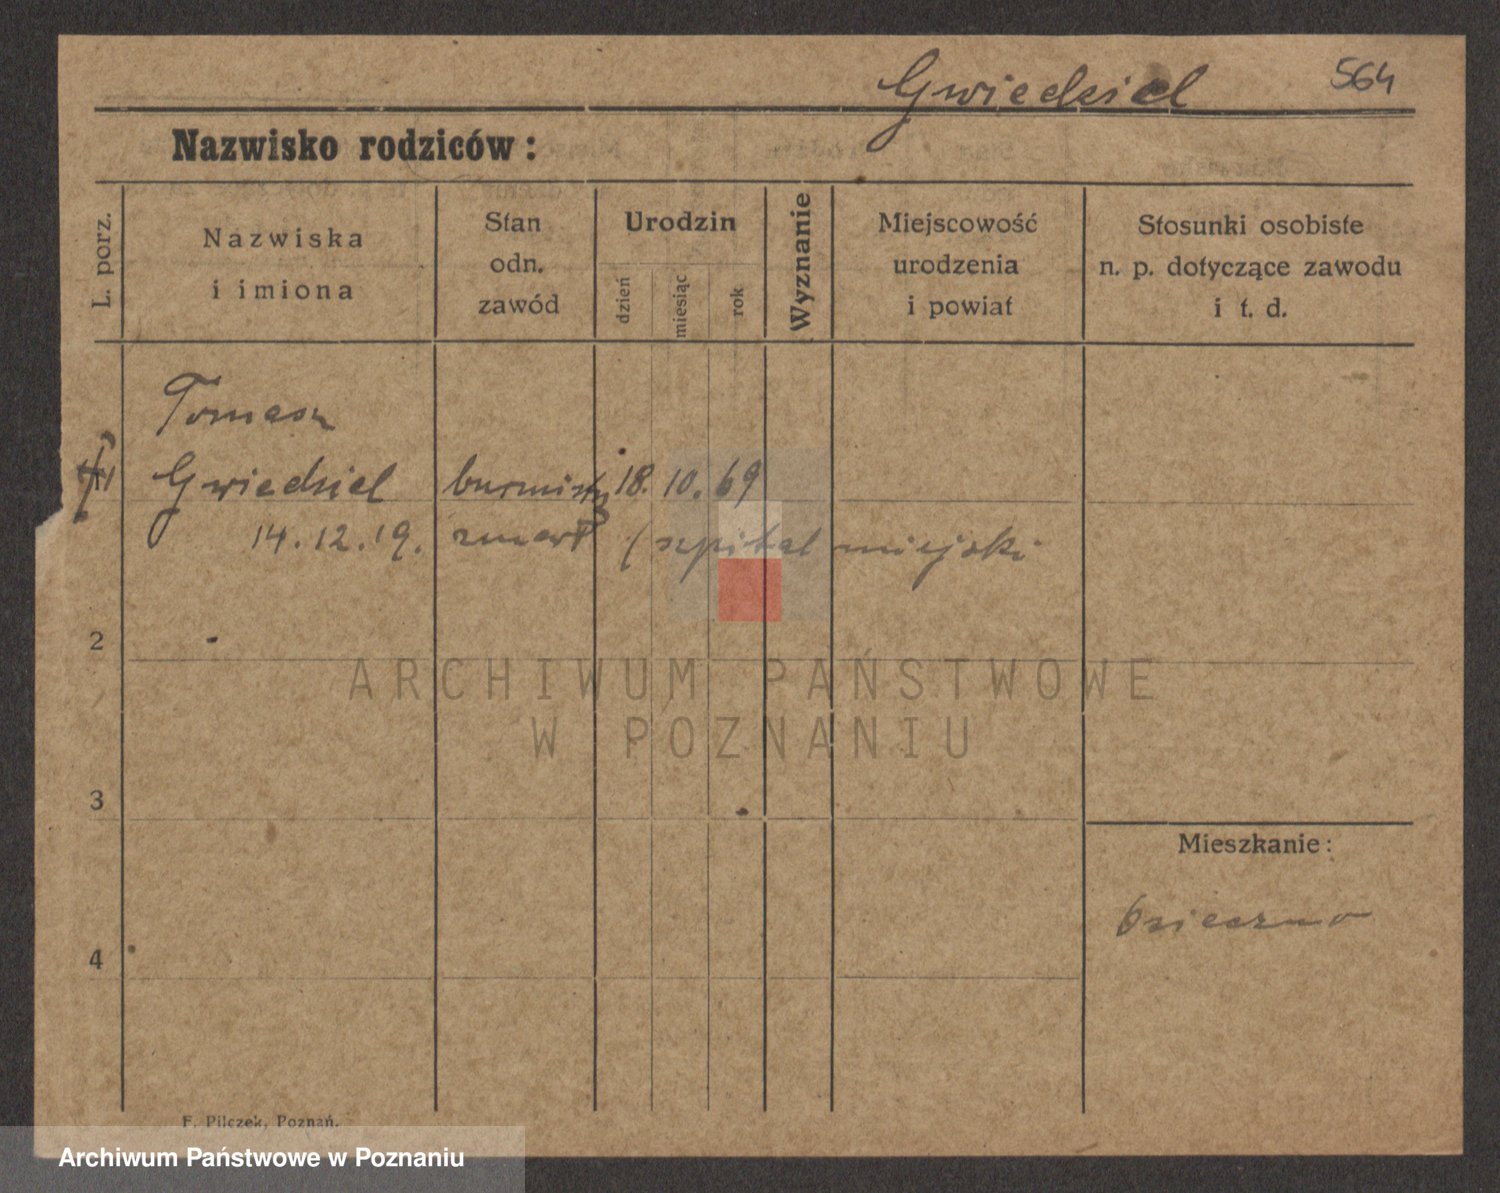 Gwiedziel 564
Nazwisko rodziców:
L. porz.
Nazwiska
i imiona
Stan
odn.
zawód
Urodzin
dzień
miesiąc
rok
Wyznanie
Miejscowość
urodzenia
i powiat
Stosunki osobiste
n. p. dotyczące zawodu
i t. d.
Tomasz
Gwiedziel burmistrz 18. 10. 69
14.12.19. zmarł (szpital miejski
2
ARCHIWUM PAŃSTWOWE
W POZNANIU
3
Mieszkanie:
Osieczno
4
F. Pilczek, Poznań.
Archiwum Państwowe w Poznaniu